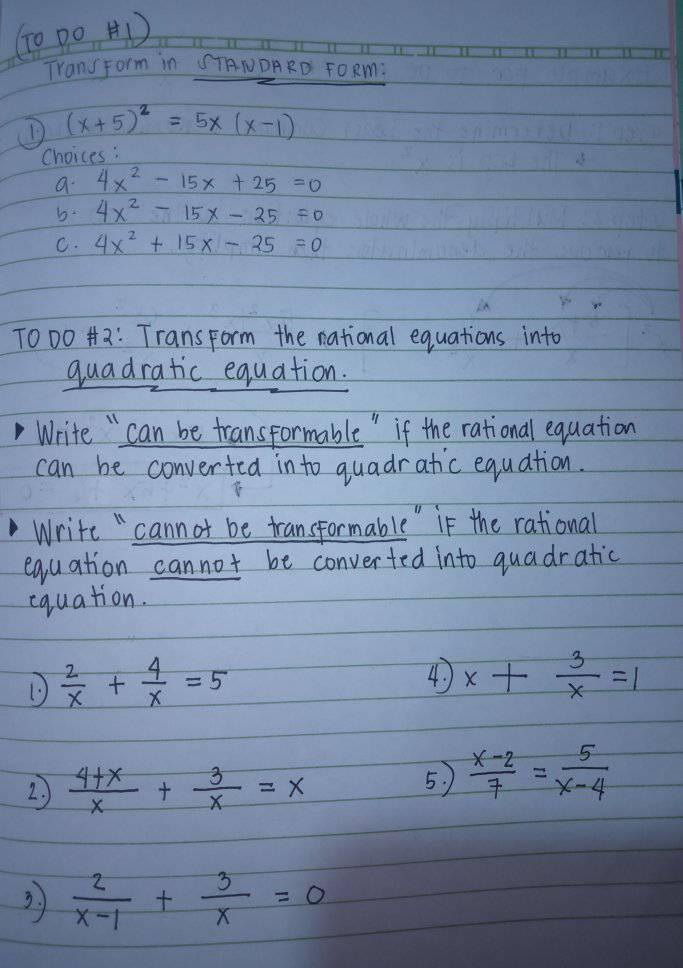 (TO DO #1)
Transform in STANDARD FORM:
1. (x+5)² = 5x (x-1)
Choices:
a. 4x² - 15x + 25 = 0
b. 4x² - 15x - 25 = 0
c. 4x² + 15x - 25 = 0
TO DO #2: Transform the rational equations into
quadratic equation.
▸ Write "can be transformable" if the rational equation
can be converted into quadratic equation.
▸ Write "cannot be transformable" if the rational
equation cannot be converted into quadratic
equation.
1.) 2/x + 4/x = 5
4.) x + 3/x = 1
2.) 4+x/x + 3/x = x
5.) x-2/7 = 5/x-4
3.) 2/x-1 + 3/x = 0